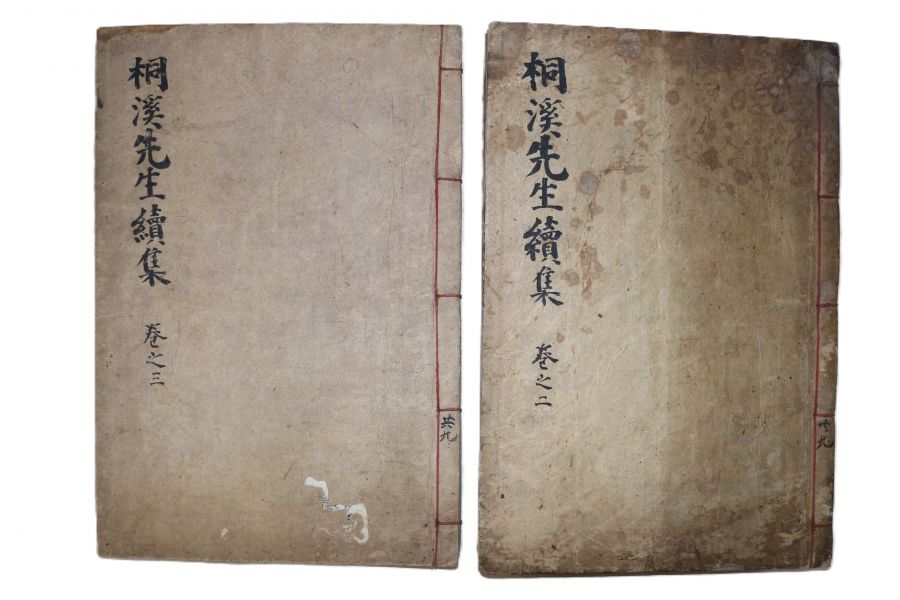 桐溪先生續集
卷之三
共九
桐溪先生續集
卷之二
共九